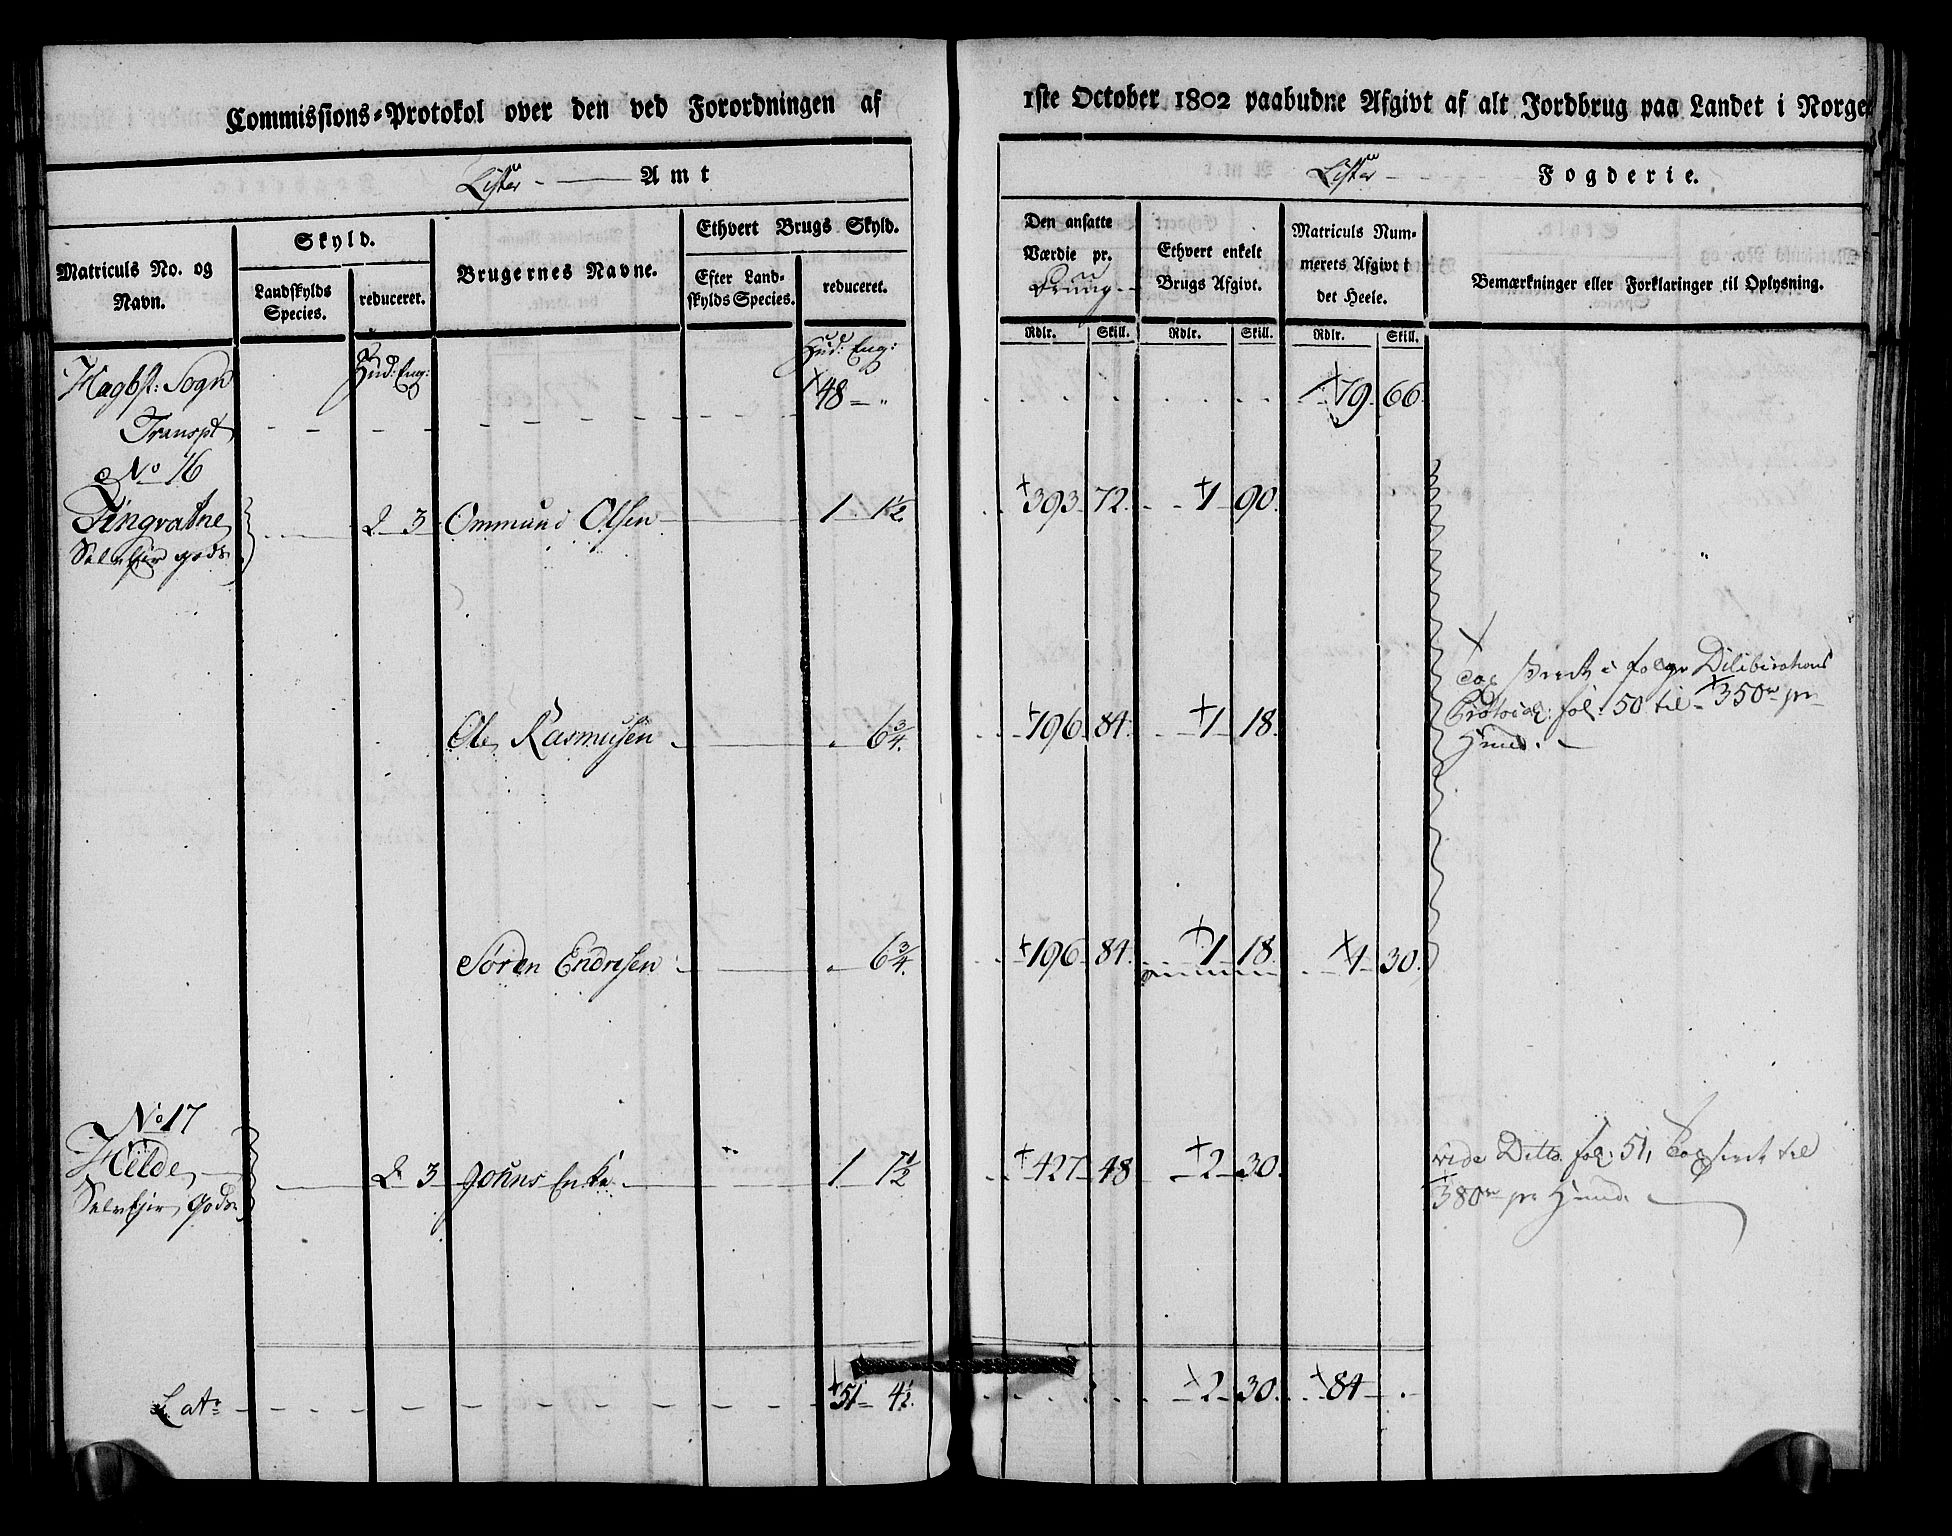 Commissions-Protokol over den ved Forordningen af 1ste October 1802 paabudne Afgivt af alt Jordbrug paa Landet i Norge
Lister Amt
Lister Fogderie.
Matriculs No. og Navn.
Skyld.
Landskylds Species.
reduceret.
Brugernes Navne.
Ethvert Brugs Skyld.
Efter Landskylds Species.
reduceret.
Den ansatte Værdie pr.
Ethvert enkelt Brugs Afgivt.
Matriculs Nummerets Afgivt i det Heele.
Bemærkninger eller Forklaringer til Oplysning.
Rdlr. Skill. Rdlr. Skill. Rdlr. Skill.
Hud: Eng: Hud: Eng:
Sogn
Transpt 48 " 79 66
No 16
Tingvatne 2 3 Ommund Olsen 1 1½ 393 72 1 90
Selvejer gods
i følge Deliberations
fol: 50 til 350 pr
Ole Rasmusen 6¾ 196 84 1 18 Huud.
Søren Endresen 6¾ 196 84 1 18 4 30
No 17
2 3 Johns Enke 1 1½ 427 48 2 30 vide Ditto fol: 51, til
Selvejer Gods 380 pr Huud.
Lats 51 4½ 2 30 84